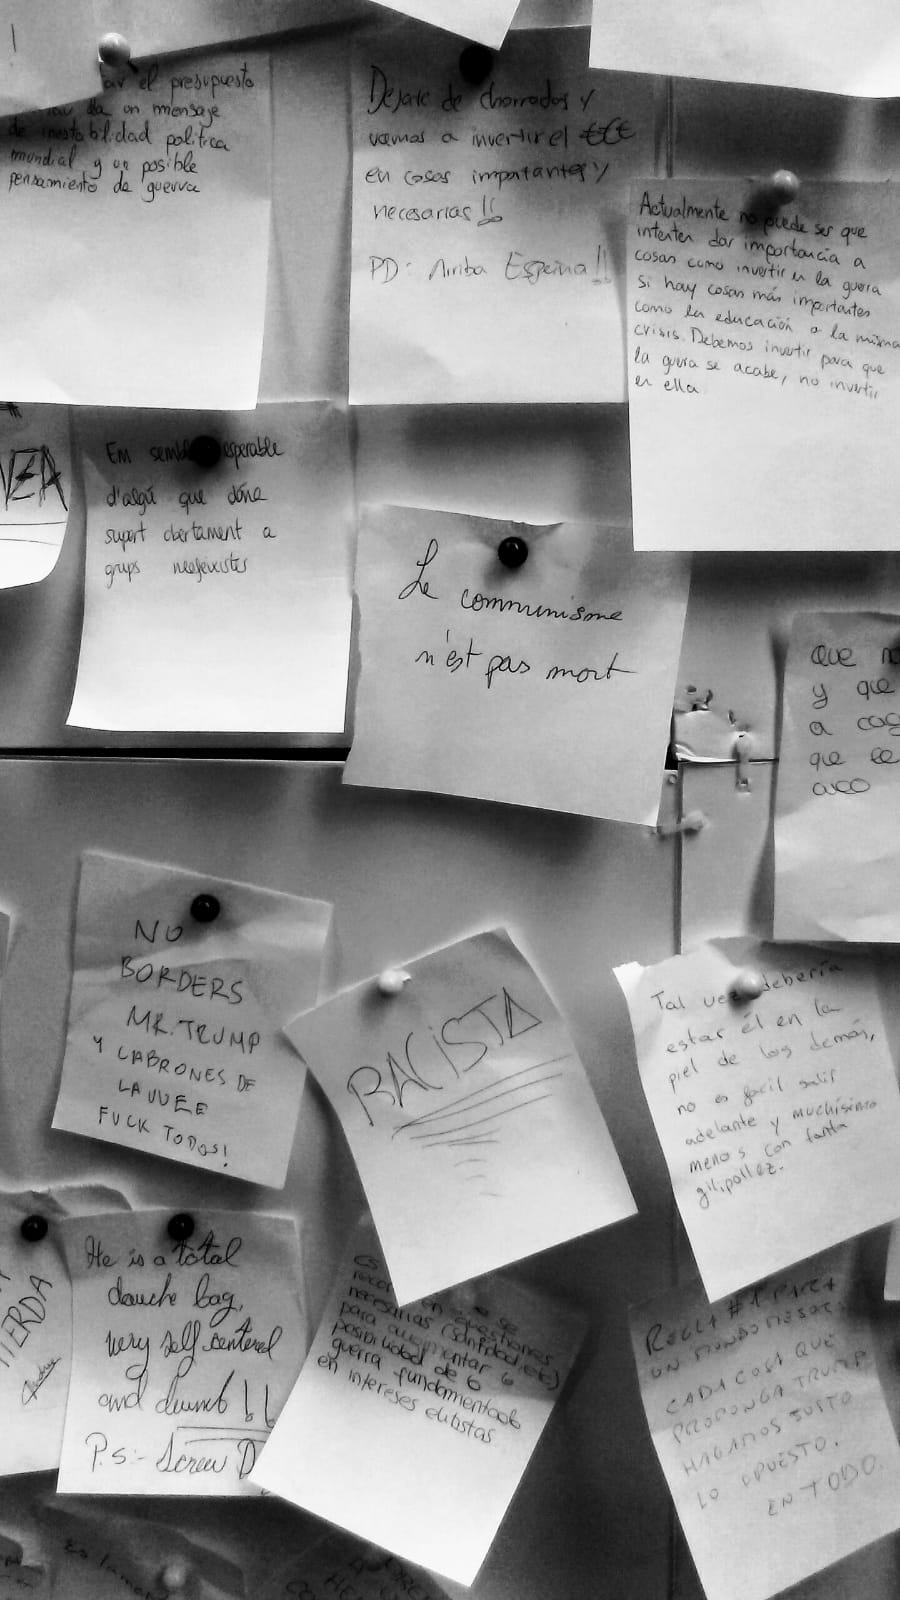 el presupuesto
da un mensaje
de inestabilidad política
mundial y un posible
pensamiento de guerra
Dejate de chorradas y
vamos a invertir el €€€
en cosas importantes y
necesarias!!
PD: Arriba Espeina!!
Actualmente no puede ser que
intenten dar importancia a
cosas como invertir en la guerra
si hay cosas más importantes
como la educación o la misma
crisis. Debemos invertir para que
la guerra se acabe, no invertir
en ella.
Em sembla esperable
d'algú que dóna
suport obertament a
grups neofeixistes
Le communisme
n'est pas mort
que
y que
a
que se
NO
BORDERS
MR. TRUMP
Y CABRONES DE
LA UUEE
FUCK TODOS!
RACISTA
Tal vez debería
estar él en la
piel de los demás,
no es facil salir
adelante y muchísimo
menos con tanta
gilipollez.
He is a total
douche bag,
very self centered
and dumb!!
P.S:- Screw D
se
cuestiones
necesarias (sanidad, etc)
para augmentar
posibilidad de
guerra fundamentada
en intereses elitistas
REGLA #1 PARA
UN MUNDO MEJOR:
CADA COSA QUE
PROPONGA TRUMP
HAGAMOS JUSTO
LO OPUESTO.
EN TODO.